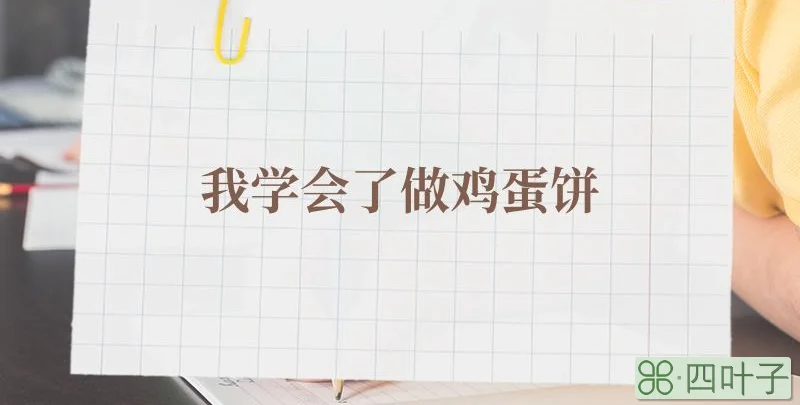 我学会了做鸡蛋饼
四叶子